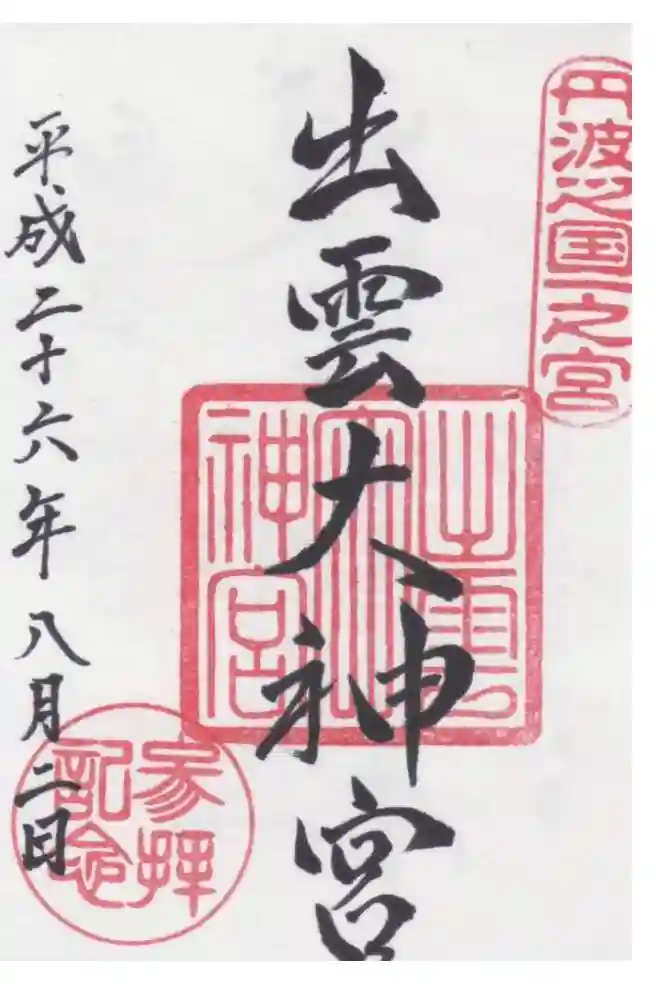 丹波之国一之宮
出雲大神宮
出雲
大
神宮
平成二十六年八月二日
参拝
記念